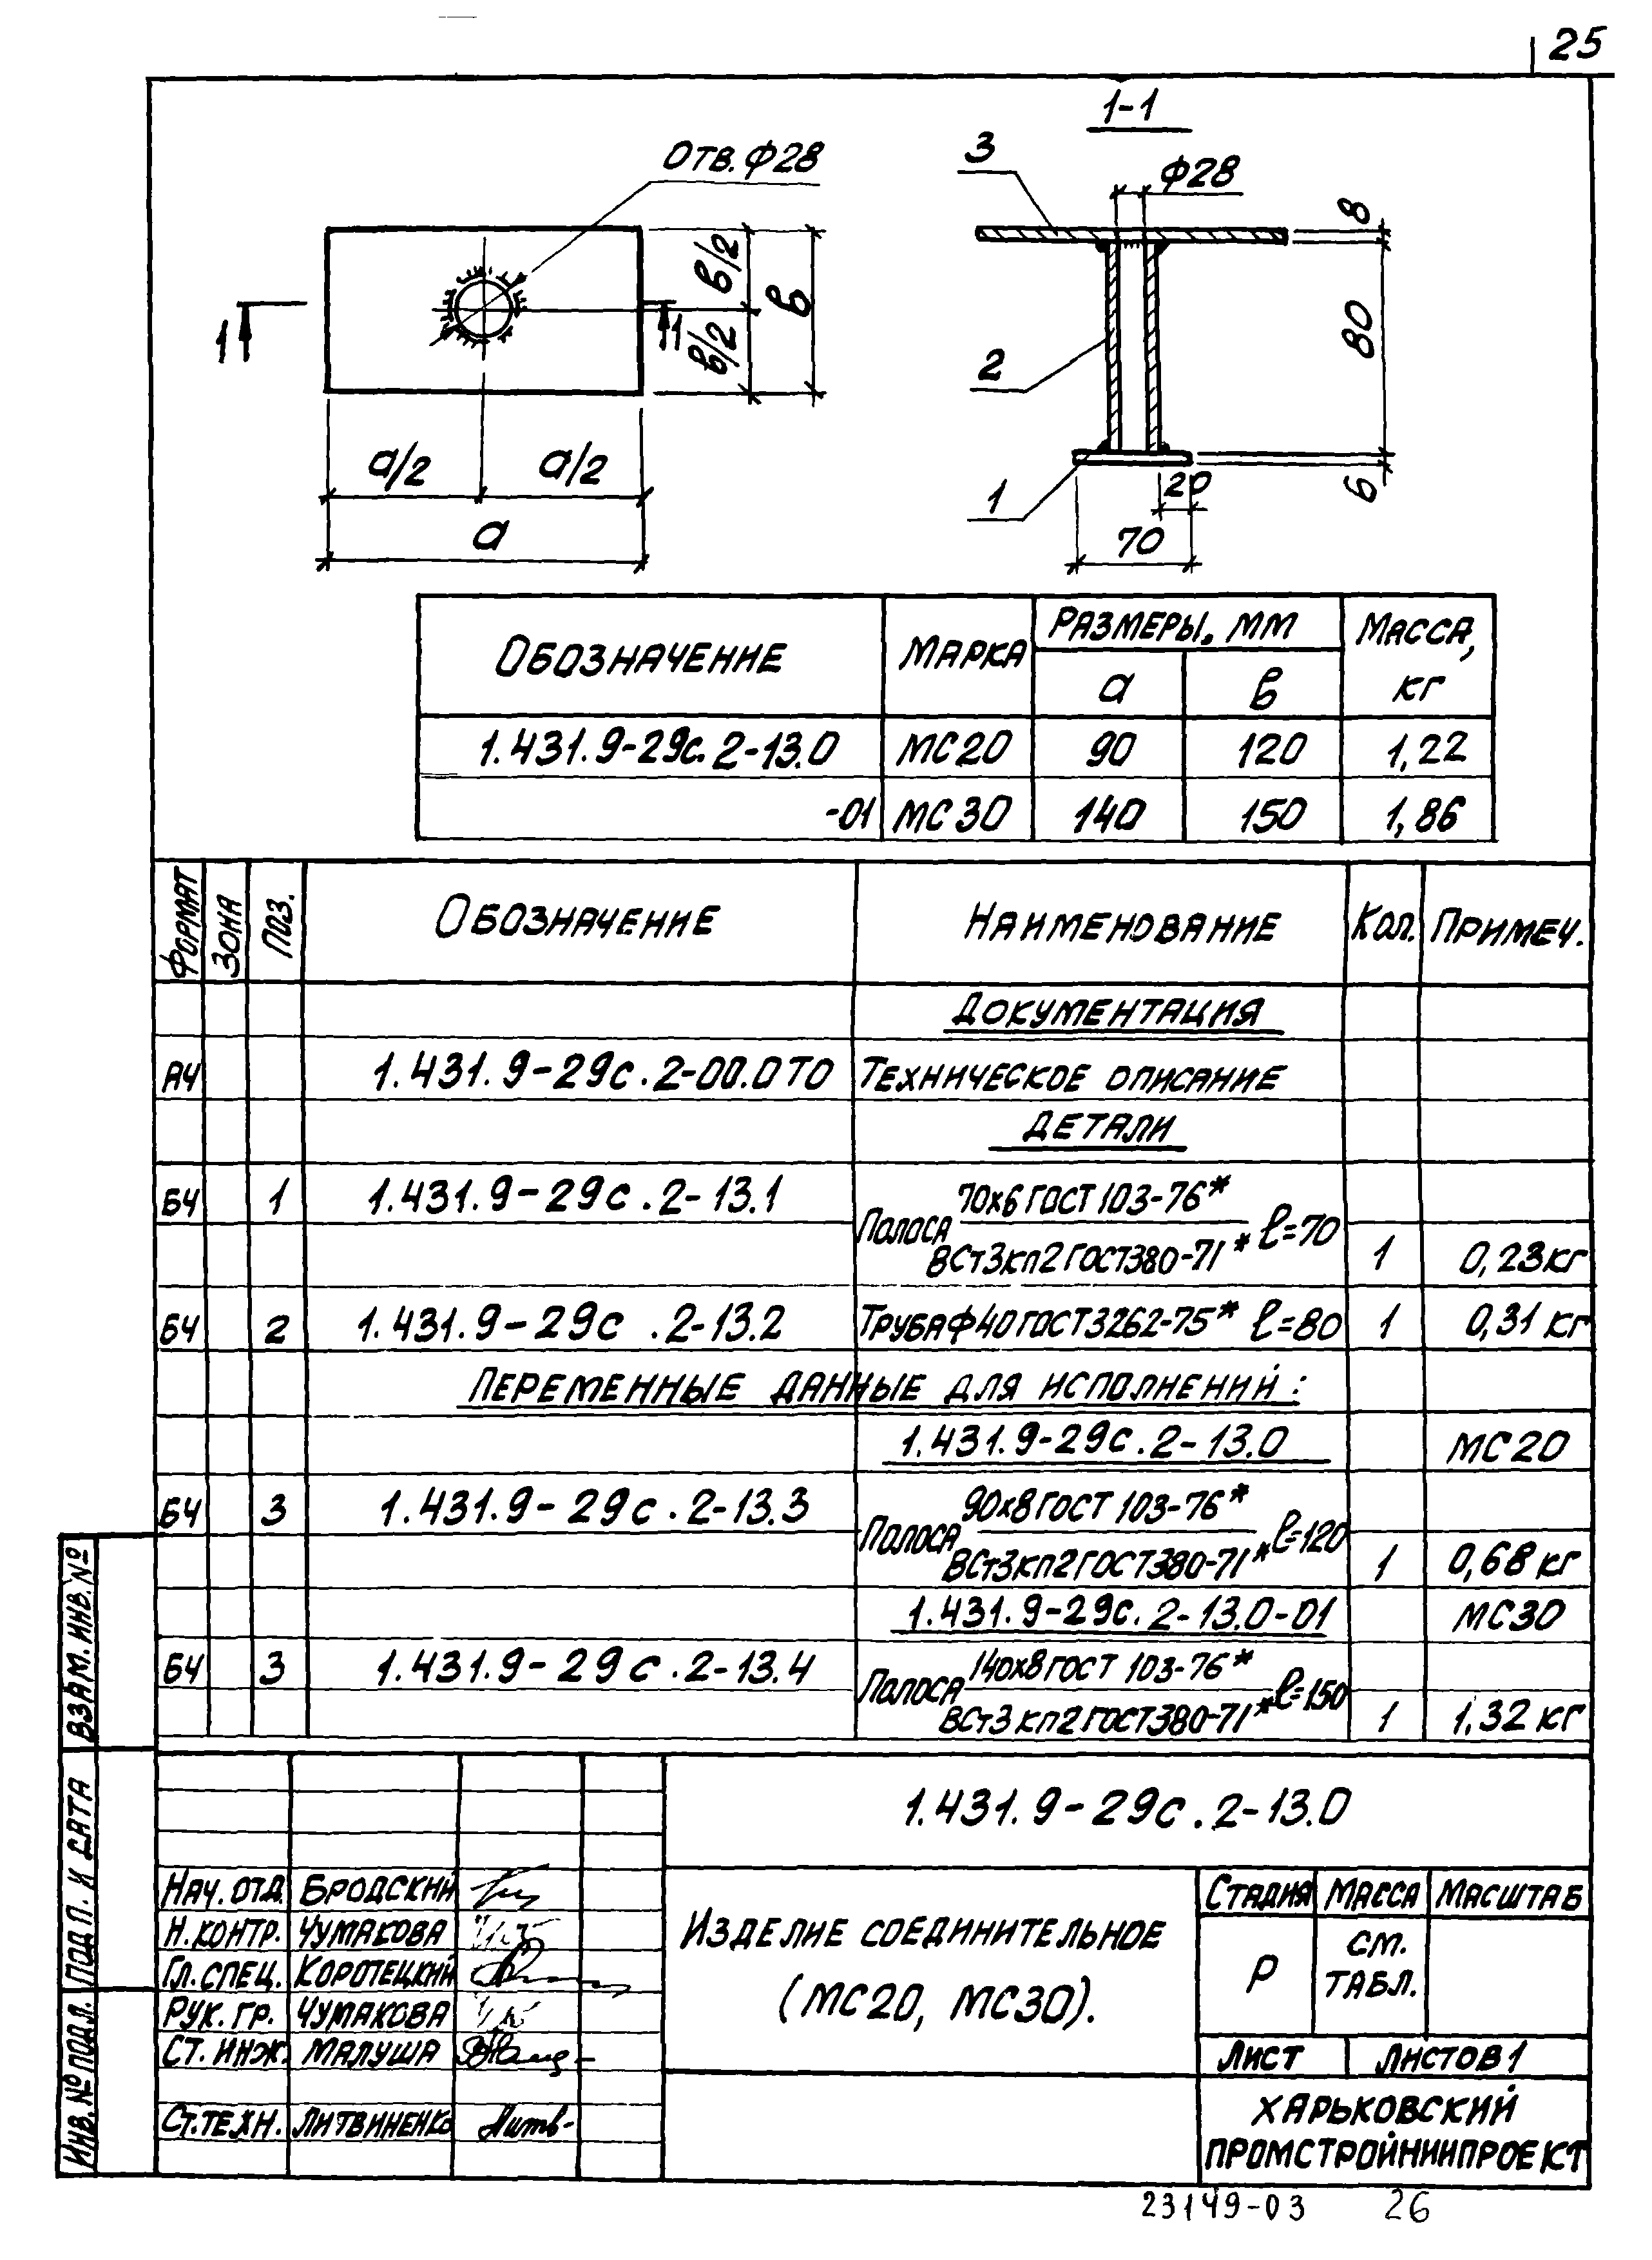 25
1-1
Отв. Ф28
3
Ф28
8
в/2
в
в/2
1
1
2
80
а/2
а/2
а
1
20
6
70
Обозначение
Марка
Размеры, мм
Масса, кг
а
в
1.431.9-29с.2-13.0 МС20 90 120 1,22
-01 МС30 140 150 1,86
Формат Зона Поз. Обозначение Наименование Кол. Примеч.
Документация
А4 1.431.9-29с.2-00.0ТО Техническое описание
Детали
БЧ 1 1.431.9-29с.2-13.1 Полоса 70х6 ГОСТ 103-76*
ВСт3кп2 ГОСТ380-71* ℓ=70 1 0,23кг
БЧ 2 1.431.9-29с.2-13.2 Труба Ф40 ГОСТ3262-75* ℓ=80 1 0,31 кг
Переменные данные для исполнений:
1.431.9-29с.2-13.0 МС20
БЧ 3 1.431.9-29с.2-13.3 Полоса 90х8 ГОСТ 103-76*
ВСт3кп2 ГОСТ380-71* ℓ=120 1 0,68 кг
1.431.9-29с.2-13.0-01 МС30
БЧ 3 1.431.9-29с.2-13.4 Полоса 140х8 ГОСТ 103-76*
ВСт3кп2 ГОСТ380-71* ℓ=150 1 1,32 кг
Взам. инв. №
Подп. и дата
Инв. № подл.
1.431.9-29с.2-13.0
Нач. отд. Бродский
Н. контр. Чумакова
Гл. спец. Коротецкий
Рук. гр. Чумакова
Ст. инж. Малуша
Ст. техн. Литвиненко Литв-
Изделие соединительное
(МС20, МС30).
Стадия Масса Масштаб
Р см. табл.
Лист Листов 1
Харьковский
Промстройниипроект
23149-03 26